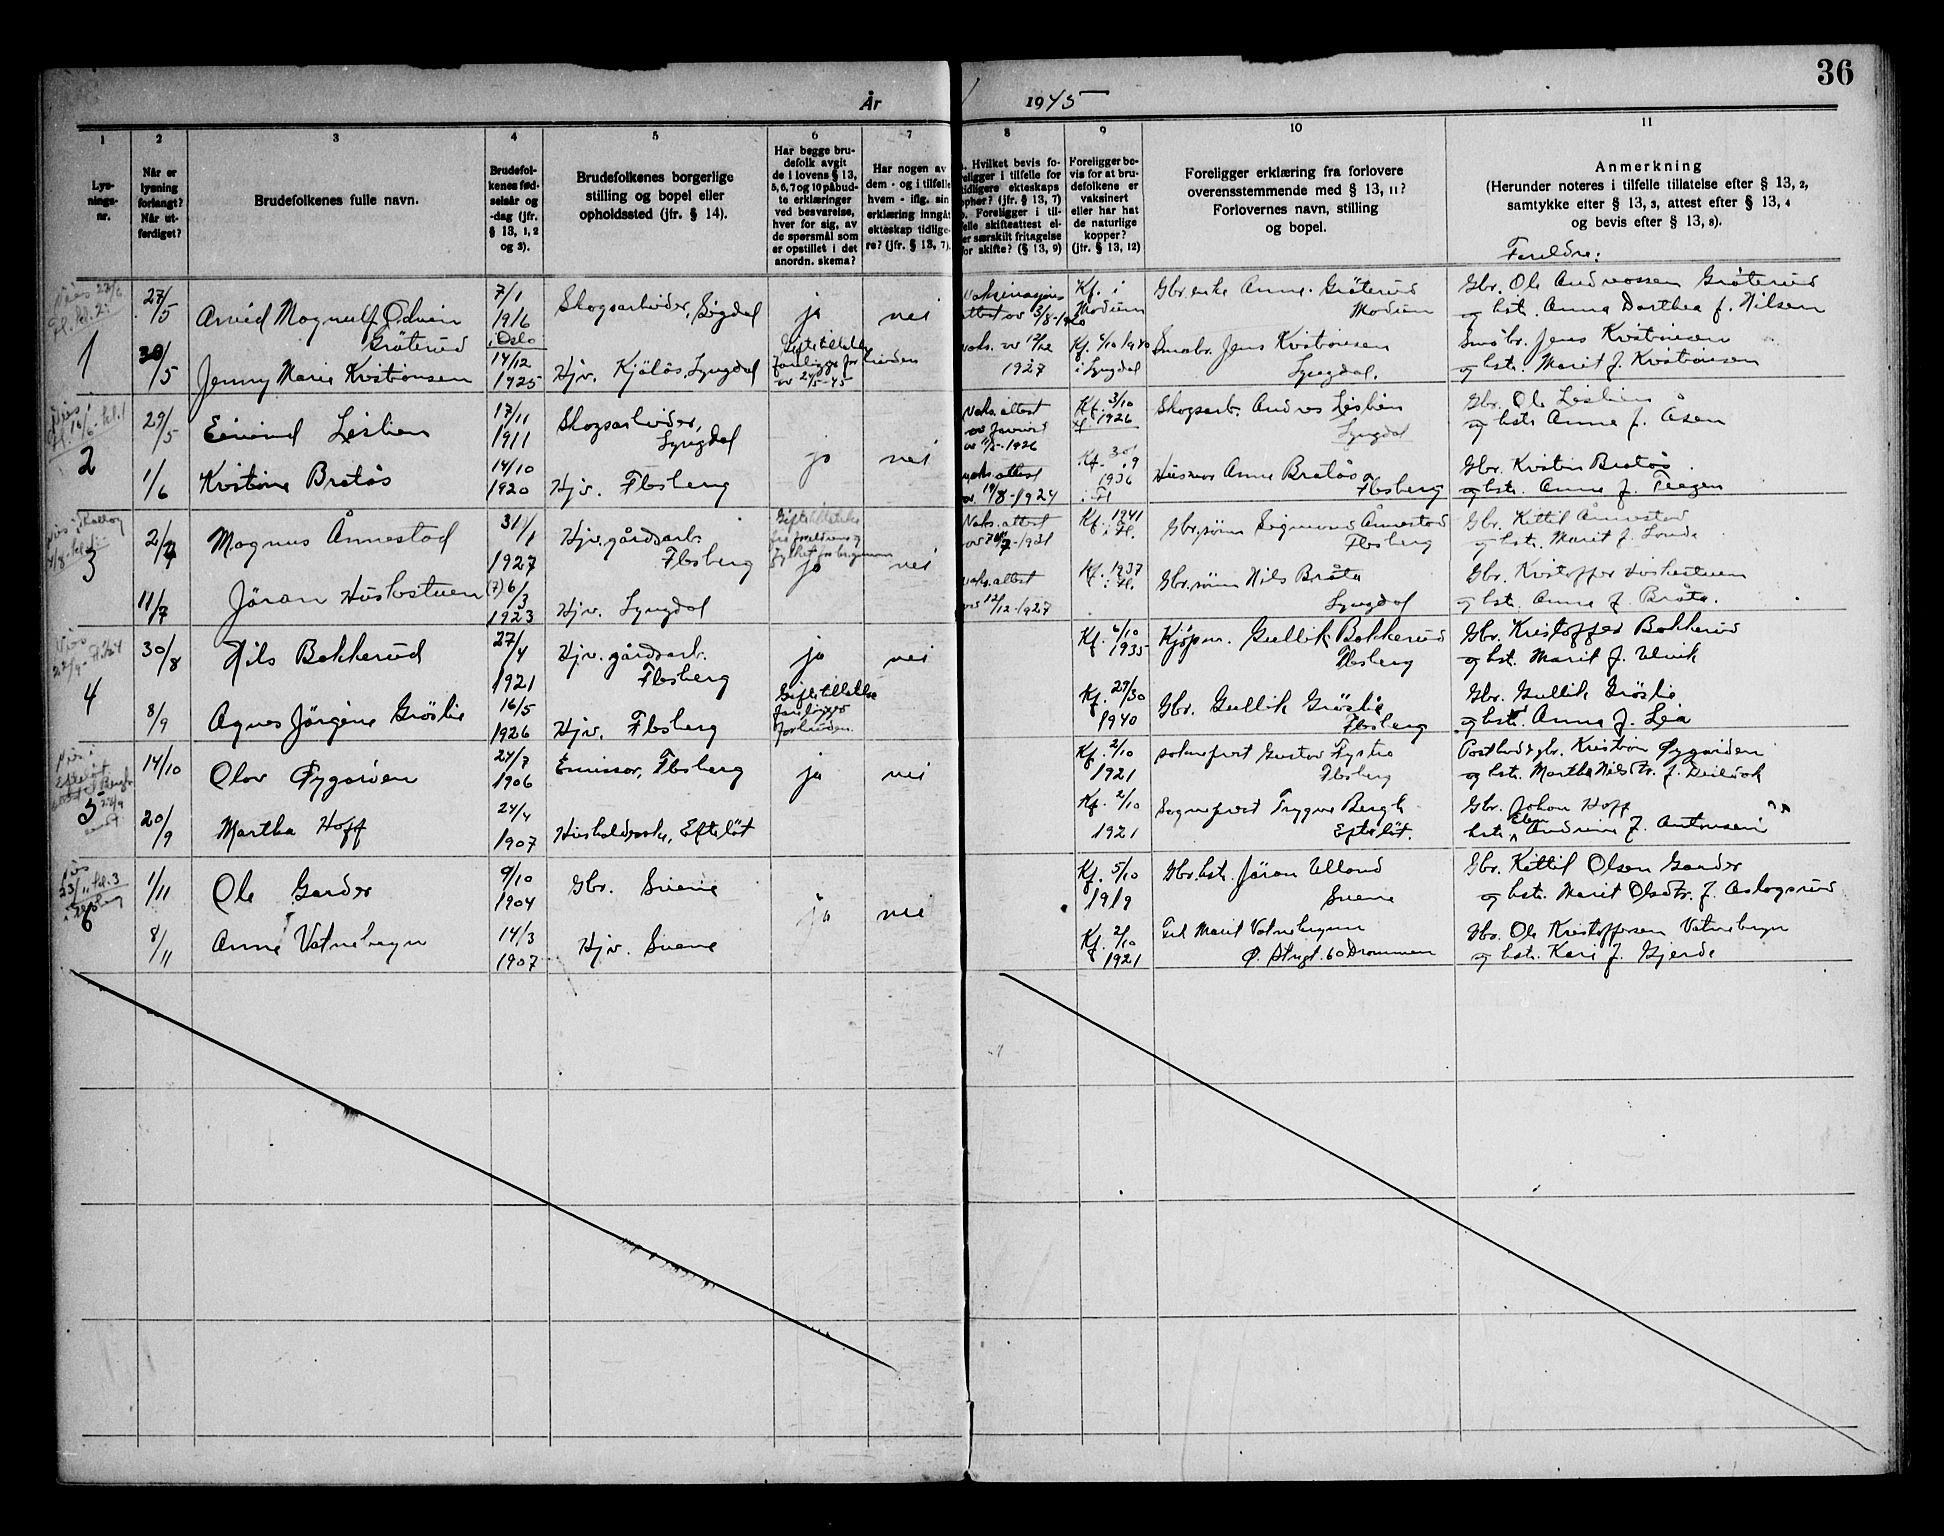 36
År 1945
1
2
3
4
5
6
7
8
9
10
11
Lys-
nings-
nr.
Når er
lysning
forlangt?
Når ut-
ferdiget?
Brudefolkenes fulle navn.
Brudefol-
kenes fød-
selsår og
-dag (jfr.
§ 13, 1, 2
og 3).
Brudefolkenes borgerlige
stilling og bopel eller
opholdssted (jfr. § 14).
Har begge bru-
defolk avgit
de i lovens § 13,
5, 6, 7 og 10 påbud-
te erklæringer
ved besvarelse,
hver for sig, av
de spørsmål som
er opstillet i det
anordn. skema?
Har nogen av
dem - og i tilfelle
hvem - iflg. sin
erklæring inngåt
ekteskap tidlige-
re? (jfr. § 13, 7).
Hvilket bevis fo-
religger i tilfelle for
tidligere ekteskaps
ophør? (jfr. § 13, 7)
b. Foreligger i til-
felle skifteattest el-
ler særskilt fritagelse
for skifte? (§ 13, 9)
Foreligger be-
vis for at bru-
defolkene er
vaksinert
eller har hat
de naturlige
kopper?
(jfr. § 13, 12)
Foreligger erklæring fra forlovere
overensstemmende med § 13, 11?
Forlovernes navn, stilling
og bopel.
Anmerkning
(Herunder noteres i tilfelle tillatelse efter § 13, 2,
samtykke efter § 13, 3, attest efter § 13, 4
og bevis efter § 13, 8).
Foreldre:
1
27/5
Arvid Magnulf Odvin
Gråterud
7/1
1916
i Oslo
Skogsarbeider, Sigdal
ja
nei
Vaksinasjons
attest av 3/8-1920
Kf. i
Modum
Gbr.enke Anne Gråterud
Modum
Gbr. Ole Andreassen Gråterud
og hst. Anna Dorthea f. Nilsen
30/5
Jenny Marie Kristiansen
14/12
1925
Hjv. Kjölås, Lyngdal
Giftetillatelse
foreligger for bruden
av 24/5-45
vaks. av 12/12
1927
Kf. 4/10 1940
i Lyngdal
Småbr. Jens Kristiansen
Lyngdal.
Småbr. Jens Kristiansen
og hst. Marit f. Kristiansen
2
29/5
Eivind Leslien
17/11
1911
Skogsarbeider,
Lyngdal
ja
nei
Vaks. attest
av 11/5-1926
Kf. 3/10
1926
Skogsarb. Andres Leslien
Lyngdal
Gbr. Ole Leslien
og hst. Anne f. Åsen
1/6
Kristine Bratås
14/10
1920
Hjv. Flesberg
vaks. attest
av 19/8-1924
Kf. 30/9
1936
i Fl
Husmor Anne Bratås
Flesberg
Gbr. Kristen Bratås
og hst. Anne f. Teigen
3
2/7
Magnus Ånnestad
31/1
1927
Hjv. gårdsarb.
Flesberg
Giftetillatelse
fra foreldrene og
fylket for brudgommen
ja
nei
Vaks. attest
Kf. 1941
i Fl.
Gbr.sønn Sigmund Ånnestad
Flesberg
Gbr. Kittil Ånnestad
og hst. Marit f. Lande
11/7
Jöran Huskestuen
(7) 6/3
1923
Hjv. Lyngdal
vaks. attest
av 12/12-1927
Kf. 1937
i Fl.
Gbr.sønn Nils Bråta
Lyngdal
Gbr. Kristoffer Huskestuen
og hst. Anne f. Bråta.
4
30/8
Nils Bakkerud
27/4
1921
Hjv. gårdsarb.
Flesberg
ja
nei
Kf. 6/10
1935
Kjøpm. Gullik Bakkerud
Flesberg
Gbr. Kristoffer Bakkerud
og hst. Marit f. Ulvik
8/9
Agnes Jörgine Gröslie
16/5
1926
Hjv. Flesberg
Giftetillatelse
foreligger
for bruden.
Kf. 29/30
1940
Gbr. Gullik Gröslie
Flesberg
Gbr. Gullik Gröslie
og hst. Anna f. Lia
5
14/10
Olav Øygarden
24/7
1906
Emissær, Flesberg
ja
nei
Kf. 2/10
1921
sokneprest Gustav Fystro
Flesberg
Postbud & gbr. Kristian Øygarden
og hst. Martha Nilsdtr. f. Deildok
20/9
Martha Hoff
24/4
1907
Husholderske, Efteløt
Kf. 2/10
1921
Sogneprest Trygve Bergh
Efteløt.
Gbr. Johan Hoff
hst. Ellen Andrine f. Antonsen
6
1/11
Ole Garder
9/10
1904
Gbr. Svene
ja
nei
Kf. 5/10
1919
Gbr. hst. Jöran Ulland
Svene
Gbr. Kittil Olsen Garder
og hst. Marit Olsdtr. f. Aslagsrud
8/11
Anne Vatnebryn
14/3
1907
Hjv. Svene
Kf. 2/10
1921
Frk Marit Vatnebrynn
Ø. Strgt. 60 Drammen
Gbr. Ole Kristoffersen Vatnebryn
og hst. Kari f. Gjerde